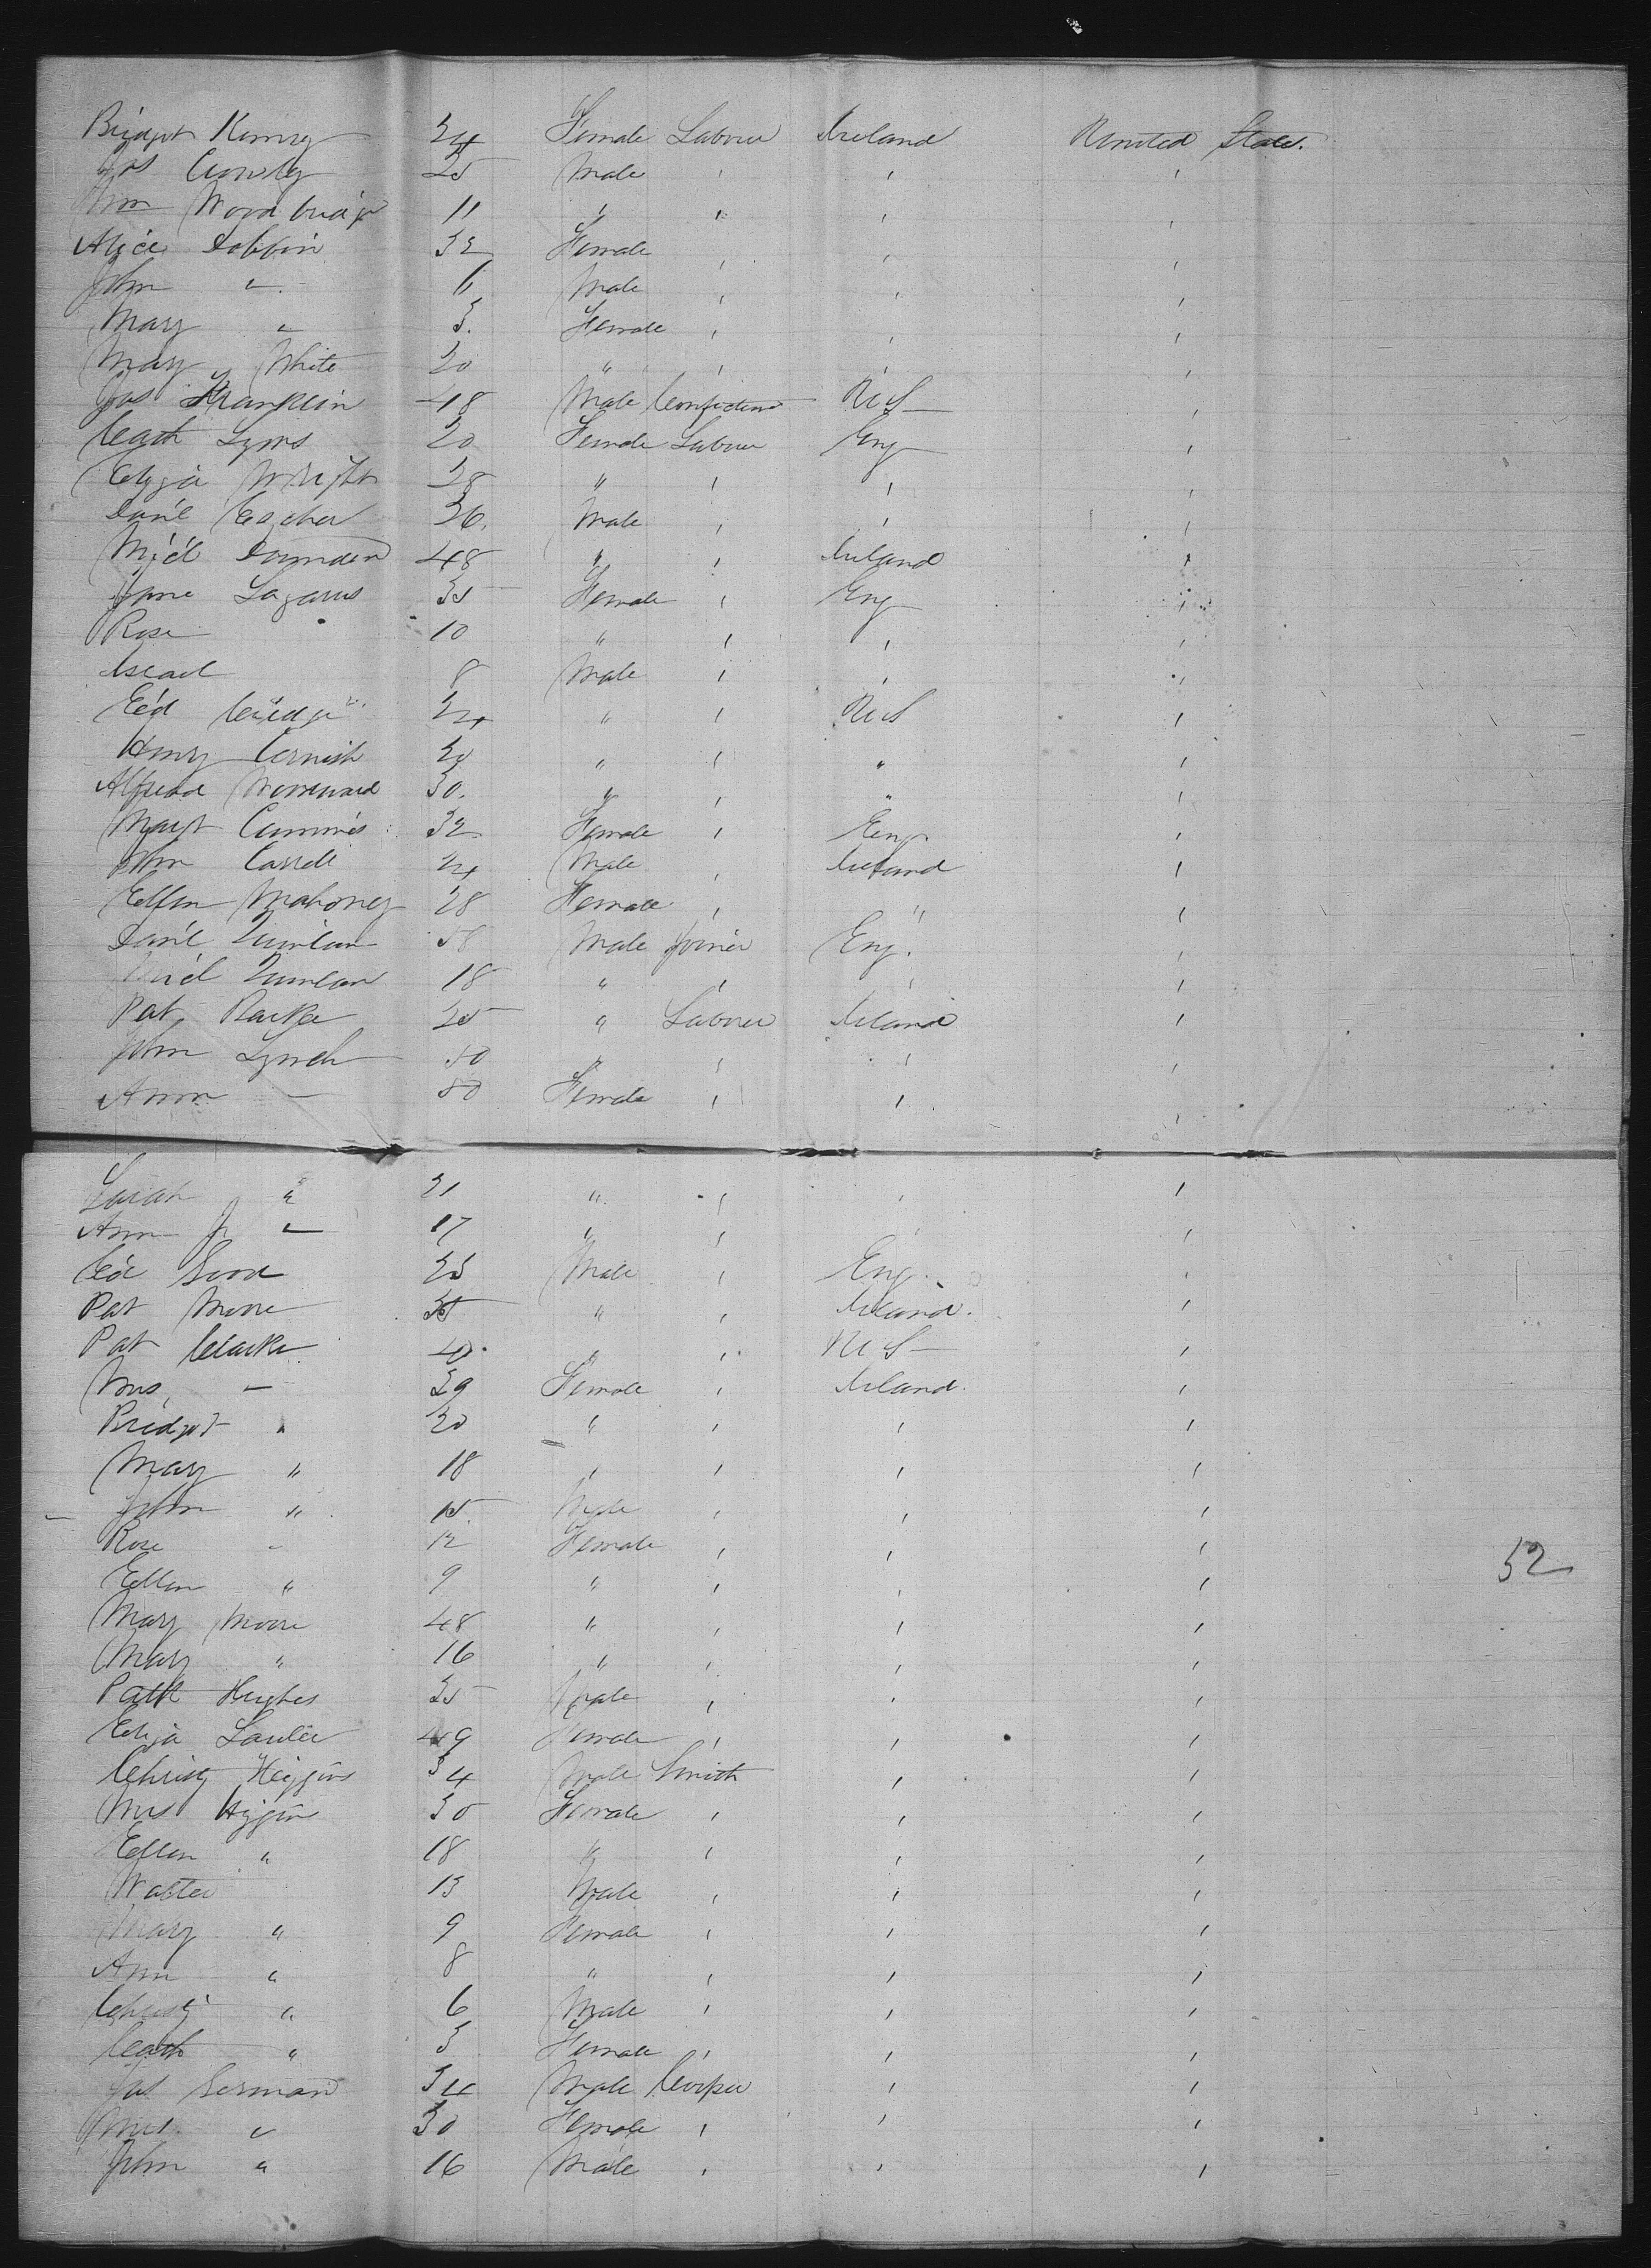 Bridget 24 Female Labour Ireland United States.
Jas 25 Male ' ' '
Woodbridge 11 " " ' '
Alice Dobbin 32 Female ' ' '
John " 11 Male ' ' '
Mary " 3. Female ' ' '
Mary White 20 " ' ' '
Jas Franklin 48 Male US '
Cath Lyons 20 Female Labour Eng '
Eliza Wright 28 " ' ' '
Dan'l 36. Male ' ' '
Mic'l 48 " ' Ireland '
Jane Lazarus 35 Female ' Eng '
Rose 10 " ' ' '
Israel 8 Male ' ' '
Ed'd 24 " ' US '
Henry Cornish 20 " ' " '
Alfred 30. " ' " '
Margt Cummins 32 Female ' Eng. '
John Carroll 24 Male ' Ireland '
Ellen Mahoney 28 Female ' " '
Dan'l Quinlan 58 Male Joiner Eng. '
Mic'l Quinlan 18 " ' ' '
Pat 25 " Labour Ireland '
John Lynch 50 " ' ' '
Ann — 50 Female ' ' '
Sarah " 21 " ' ' '
Ann Jr " 17 " ' ' '
Ed 25 Male ' Eng. '
Pat Moore 35 " ' Ireland. '
Pat Clarke 40. " ' US '
Mrs — 39 Female ' Ireland. '
Bridget " 20 " ' ' '
Mary " 18 ' ' ' '
John " 15. Male ' ' '
Rose " 12 Female ' ' '
52
Ellen " 9 " ' ' '
Mary Moore 48 " ' ' '
Mary " 16 " ' ' '
Patk Hughes 35 Male ' ' '
Eliza Lawler 49 Female ' ' '
Christy Higgins 34 Male Smith ' '
Mrs Higgins 30 Female ' ' '
Ellen " 18 " ' ' '
Walter 13 Male ' ' '
Mary " 9 Female ' ' '
Ann " 8 " ' ' '
Christy " 6 Male ' ' '
Cath " 3 Female ' ' '
Jas Gorman 34 Male Cooper ' '
Mrs. " 30 Female ' ' '
John " 16 Male ' ' '